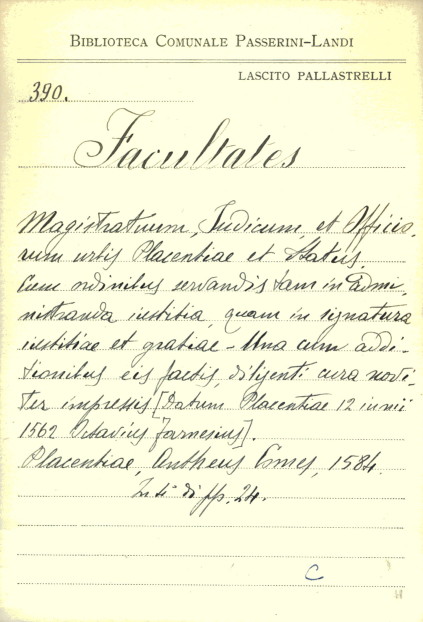 BIBLIOTECA COMUNALE PASSERINI-LANDI
LASCITO PALLASTRELLI
390.
Facultates
Magistratuum, Iudicum, et Officio,
rum urbis Placentiae et Status.
Cum ordinibus servandis tam in admi,
nistranda iustitia, quam in signatura
iustitiae et gratiae - Una cum addi-
tionibus eis factis, diligenti cura novi-
ter impressis [Datum Placentiae 12 iunii
1562 Octavius Farnesius].
Placentiae, Antheus Comes, 1584.
In 4° di pp. 24.
C